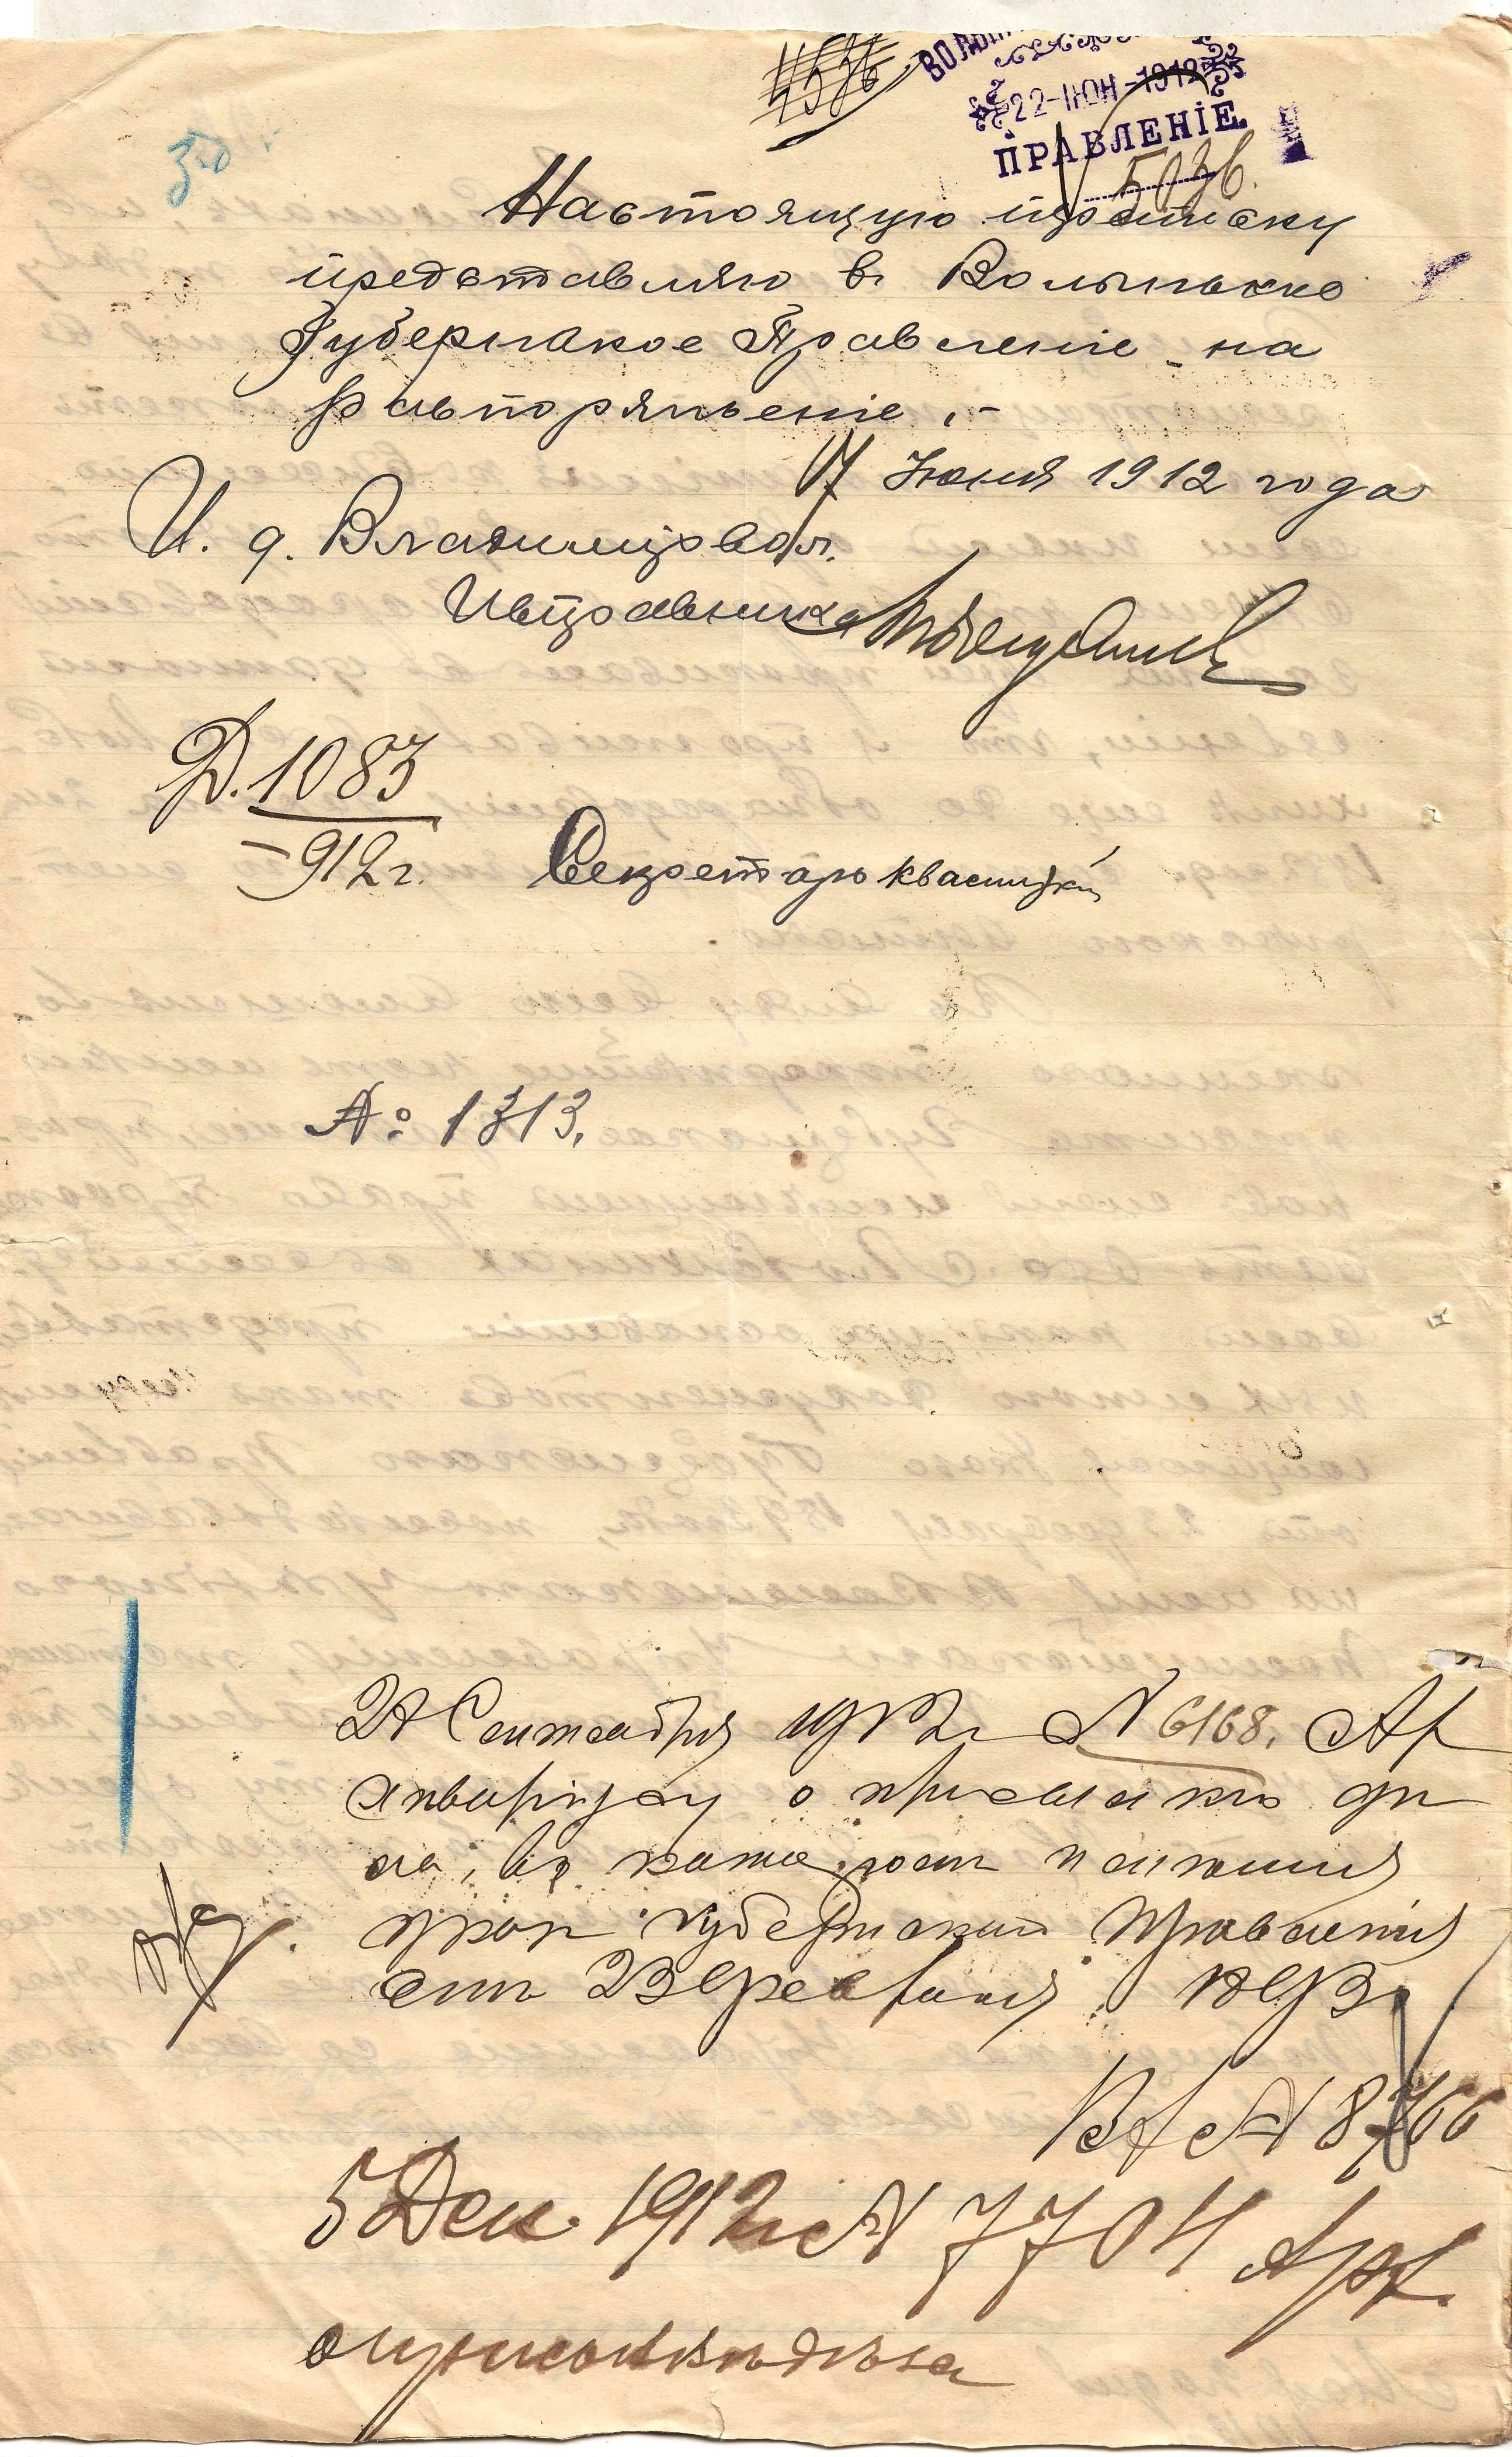 4536
22-ІЮН-1912
ПРАВЛЕНІЕ
5036.
30
Настоящую переписку
представляю въ Волынское
Губернское Правленіе на
распоряженіе.-
17 Іюня 1912 года
И. д. Владимірвол.
Исправника
Д. 1083
-912 г.
Секретарь Квасницкій
№ 1313.
24 Сентября 1912 г № 6168. Ар
хиваріусу о присылкѣ дѣ
ла, въ
Губернскаго Правленія
отъ 23 Февраля 1893
№ 8766
5 Дек. 1912 г № 7704 Арх.
о присылкѣ дѣла